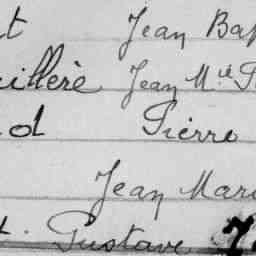 t Jean Bap
illère Jean M.ie P
d Pierre
Jean Mari
t. Gustave